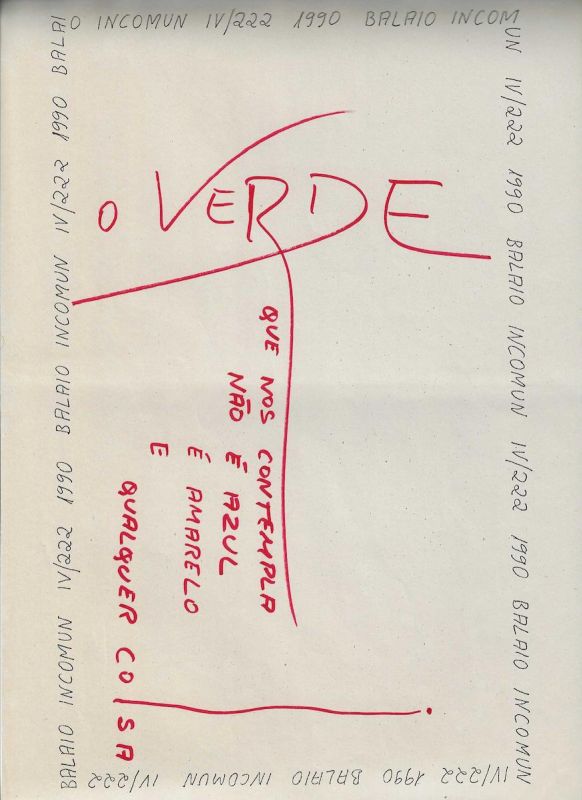 O INCOMUN IV/222 1990 BALAIO INCOM
UN IV/222 1990 BALAIO INCOMUN IV/222 1990 BALAIO INCOMUN
IV/222 1990 BALAIO INCOMUN IV/222
BALAIO INCOMUN IV/222 1990 BALAIO INCOMUN IV/222 1990 BALAI
O VERDE
QUE NOS CONTEMPLA
NÃO É AZUL
É AMARELO
E
QUALQUER COISA